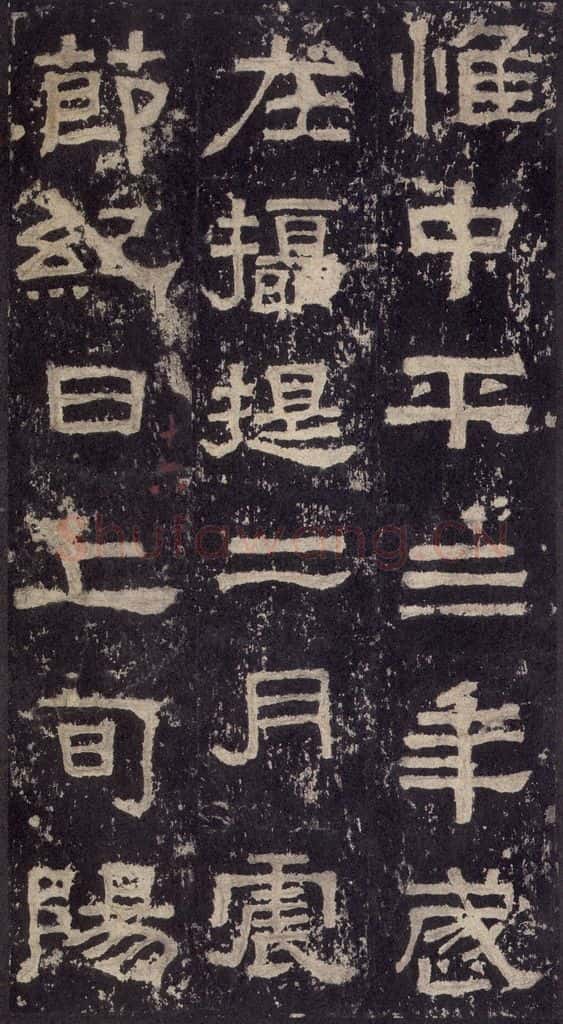 惟中平三年歲
在攝提二月震
節紀日上旬陽
Shufawang.CN